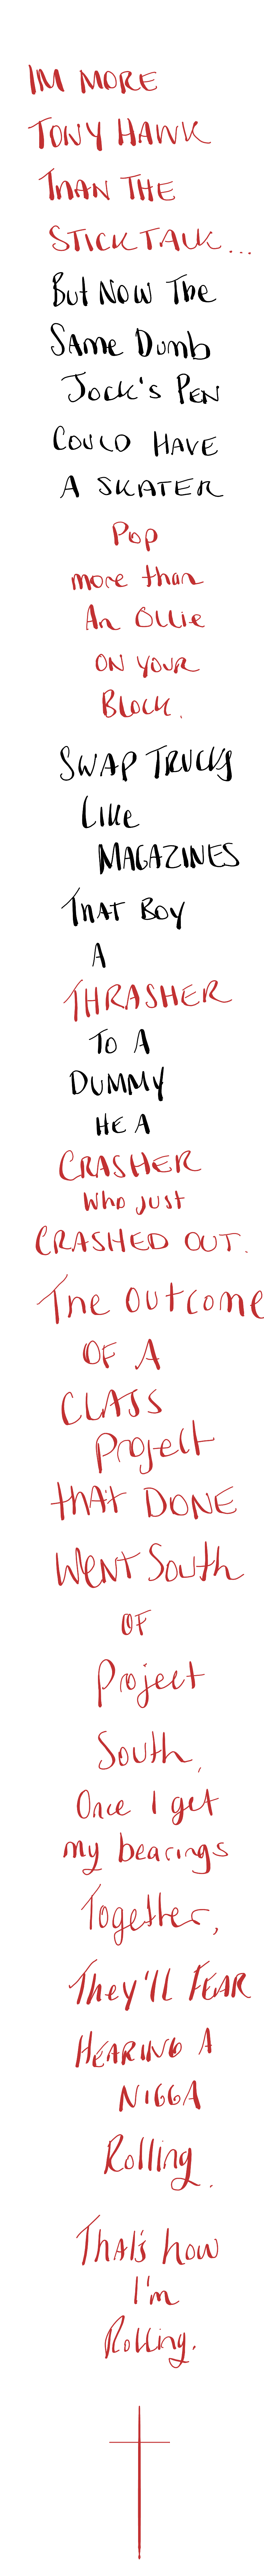 IM MORE
TONY HAWK
THAN THE
STICK TALK...
But Now The
SAme Dumb
Jock's PEN
COULD HAVE
A SKATER
Pop
more than
An Ollie
ON YOUR
BLOCK.
SWAP TRUCKS
LIKe
MAGAZINES
THAT BOY
A
THRASHER
TO A
DUMMY
HE A
CRASHER
Who just
CRASHED OUT.
The outcome
OF A
CLASS
Project
thAt DONE
WENT South
OF
Project
South,
Once I get
my bearings
Together,
They'll FEAR
HEARING A
NIGGA
Rolling.
ThAt's how
I'm
Rolling.